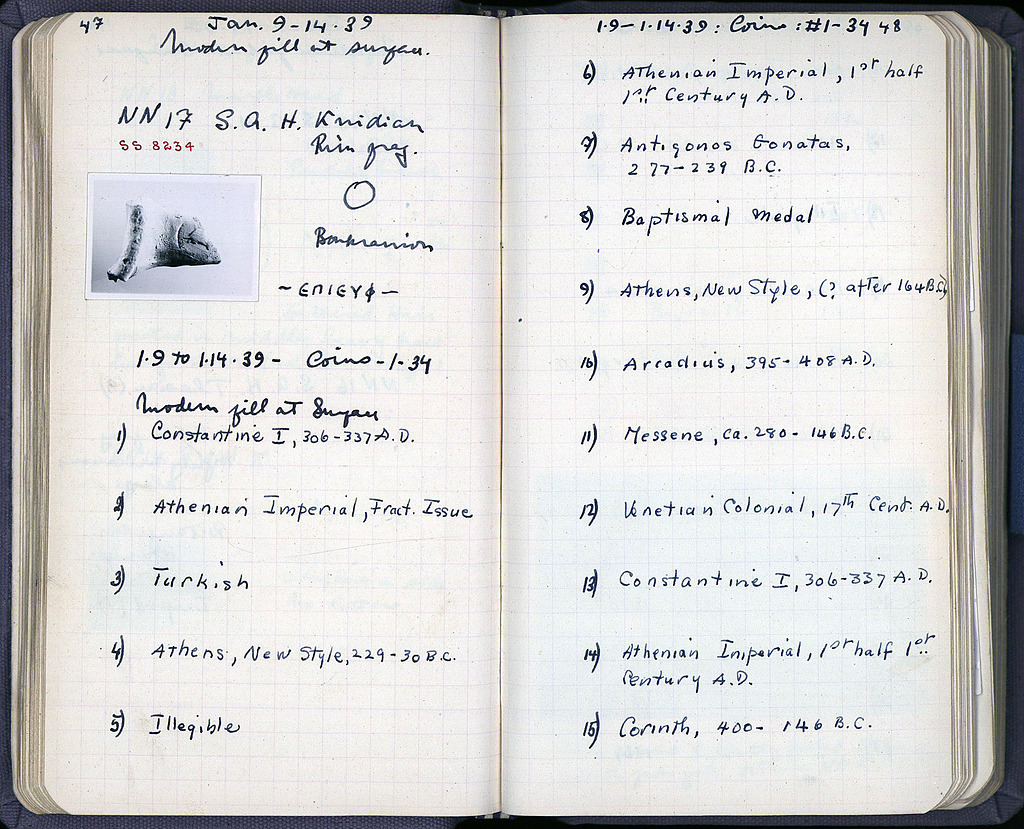 47
Jan. 9-14-39
Modern fill at surface.
NN 17 S.A. H. Knidian
SS 8234
Rim frag.
Boukranion
- ЄΠΙЄΥΦ -
1.9 to 1.14.39 - Coins - 1-34
Modern fill at Surface
1) Constantine I, 306-337 A.D.
2) Athenian Imperial, Fract. Issue
3) Turkish
4) Athens, New Style, 229-30 B.C.
5) Illegible
1.9-1.14.39: Coins: #1-34 48
6) Athenian Imperial, 1st half
1st Century A.D.
7) Antigonos Gonatas,
277-239 B.C.
8) Baptismal medal
9) Athens, New Style, (? after 164 B.C.)
10) Arcadius, 395-408 A.D.
11) Messene, ca. 280-146 B.C.
12) Venetian Colonial, 17th Cent. A.D.
13) Constantine I, 306-337 A.D.
14) Athenian Imperial, 1st half 1st
Century A.D.
15) Corinth, 400-146 B.C.